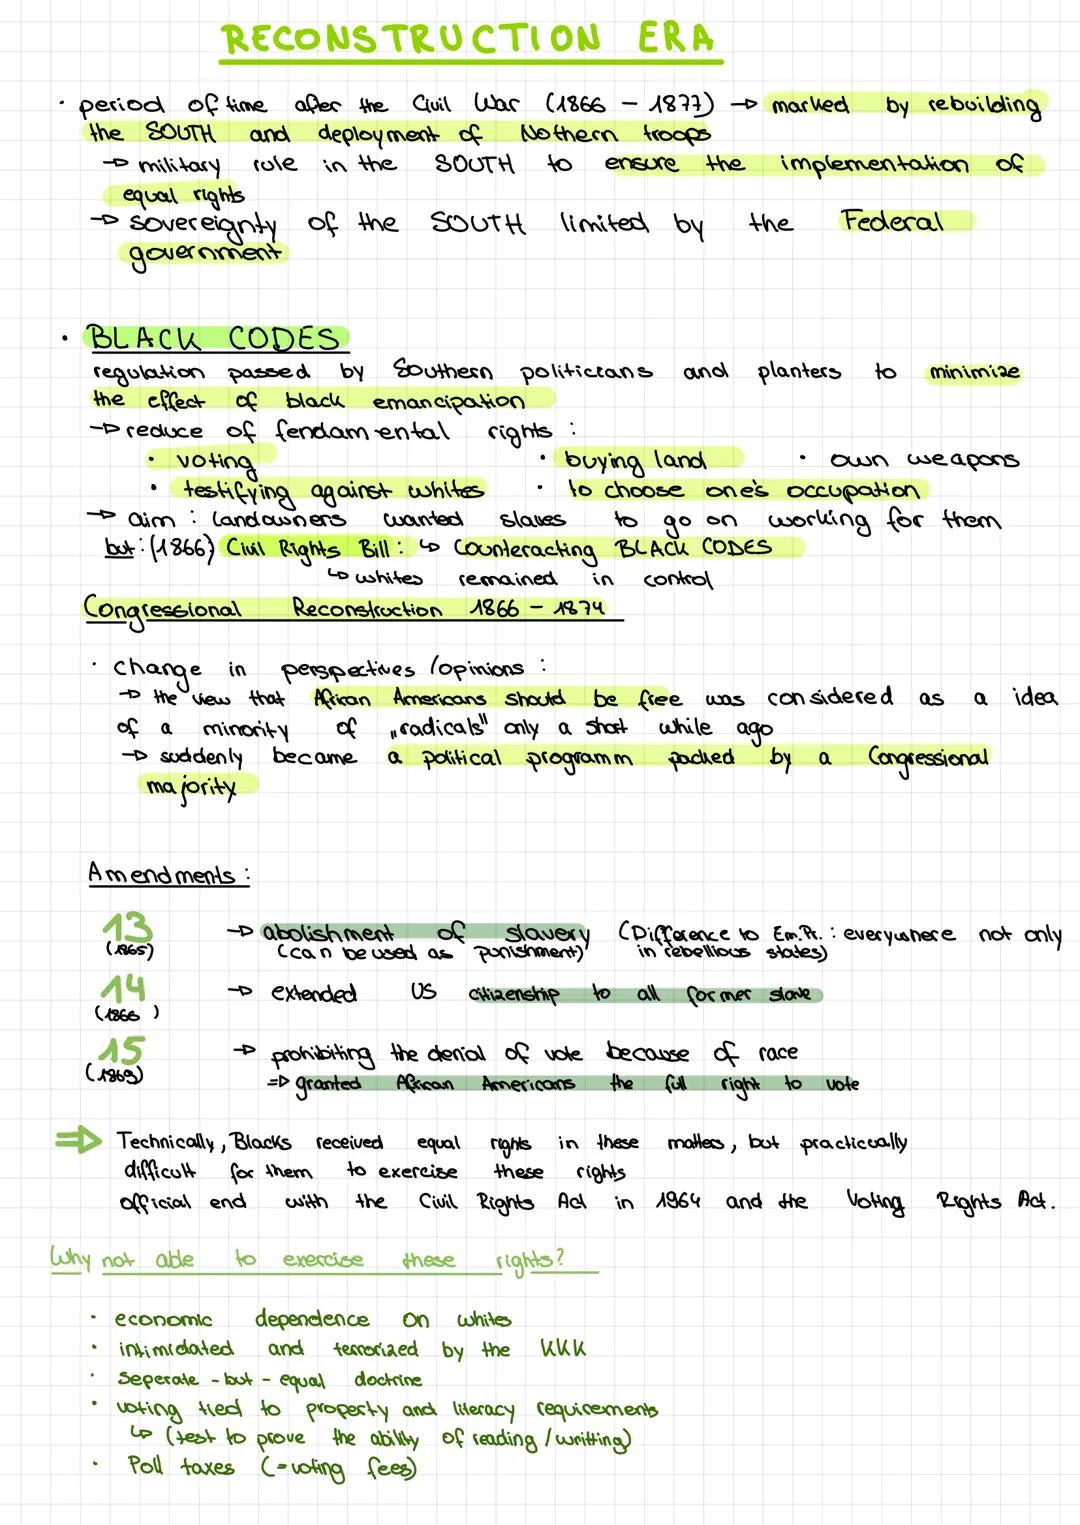 RECONSTRUCTION ERA
· period of time after the Civil War (1866 – 1877) → marked by rebuilding
the SOUTH and deployment of Nothern troops
→ military rule in the SOUTH to ensure the implementation of
equal rights
→ sovereignty of the SOUTH limited by the Federal
government
· BLACK CODES
regulation passed by Southern politicians and planters to minimize
the effect of black emancipation
→ reduce of fendamental rights :
· voting · buying land · own weapons
· testifying against whites · to choose one's occupation
→ aim : landowners wanted slaves to go on working for them
but : (1866) Civil Rights Bill : ↳ Counteracting BLACK CODES
↳ whites remained in control
Congressional Reconstruction 1866 – 1874
· change in perspectives /opinions :
→ the view that African Americans should be free was considered as a idea
of a minority of „radicals" only a short while ago
→ suddenly became a political programm packed by a Congressional
majority
Amendments :
13 → abolishment of slavery (Difference to Em.Pr. : everywhere not only
(1865) (can be used as punishment) in rebellious states)
14 → extended US citizenship to all former slave
(1866 )
15 → prohibiting the denial of vote because of race
(1869) => granted African Americans the full right to vote
⇒ Technically, Blacks received equal rights in these matters, but practiccally
difficult for them to exercise these rights
official end with the Civil Rights Act in 1964 and the Voting Rights Act.
Why not able to exercise these rights?
· economic dependence on whites
· intimidated and terrorized by the KKK
· seperate - but - equal doctrine
· voting tied to property and literacy requirements
↳ (test to prove the ability of reading / writting)
· Poll taxes (= voting fees)